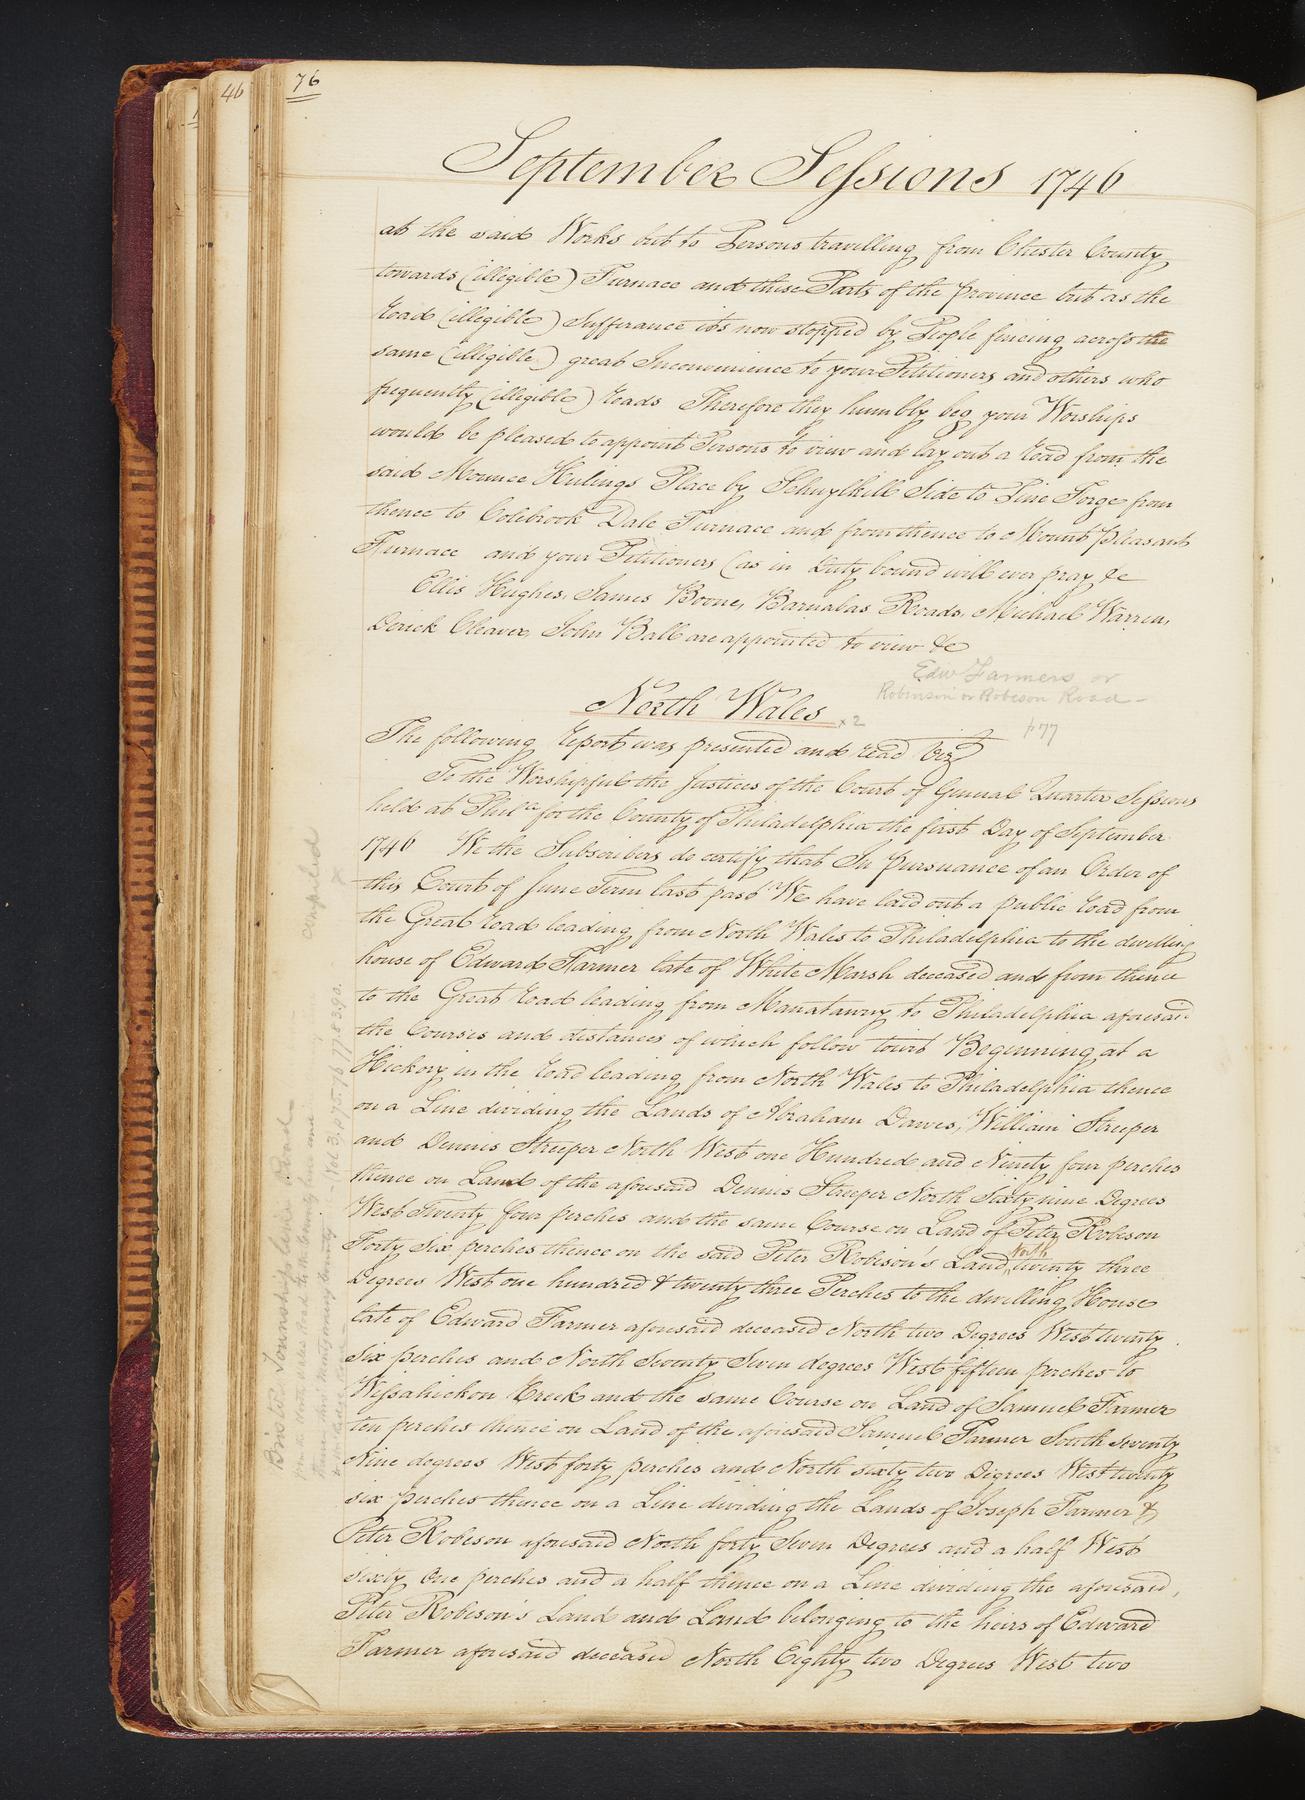 46
76
September Sessions 1746
at the said Works but to Persons travelling from Chester County
towards (illegible) Furnace and those Parts of the Province but as the
road (illegible) Sufferance its now stopped by People fencing across the
same (illegible) great Inconvenience to your Petitioners and others who
frequently (illegible) roads Therefore they humbly beg your Worships
would be pleased to appoint Persons to view and lay out a road from the
said Mounce Hulings Place by Schuylkill Side to Pine Forge from
thence to Colebrook Dale Furnace and from thence to Mount Pleasant
Furnace and your Petitioners (as in Duty bound will ever pray &c
Ellis Hughes, James Boone, Barnabas Roads, Michael Warren,
Derick Cleaver, John Ball are appointed to view &c
Edw Farmers or
Robinson or Robeson Road -
North Wales x2
p77
The following report was presented and read Vizt
To the Worshipful the Justices of the Court of General Quarter Sessions
held at Phila for the County of Philadelphia the first Day of September
1746 We the Subscribers do certify that In pursuance of an Order of
this Court of June Term last past We have laid out a public road from
the Great road leading from North Wales to Philadelphia to the dwelling
house of Edward Farmer late of White Marsh deceased and from thence
to the Great road leading from Manatawny to Philadelphia aforesaid
the Courses and distances of which follow towit Beginning at a
Hickory in the road leading from North Wales to Philadelphia thence
on a Line dividing the Lands of Abraham Dawes, William Streeper
and Dennis Streeper North West one Hundred and Ninety four perches
thence on Land of the aforesaid Dennis Streeper North Sixty nine Degrees
West Twenty four perches and the same Course on Land of Peter Robeson
Forty Six perches thence on the said Peter Robison's Land North twenty three
Degrees West one hundred & twenty three Perches to the dwelling House
late of Edward Farmer aforesaid deceased North two Degrees West twenty
Six perches and North Seventy Seven degrees West fifteen perches to
Wissahickon Creek and the same Course on Land of Samuel Farmer
ten perches thence on Land of the aforesaid Samuel Farmer South Seventy
Nine degrees West forty perches and North sixty two Degrees West twenty
six perches thence on a Line dividing the Lands of Joseph Farmer &
Peter Robeson aforesaid North forty Seven Degrees and a half West
sixty One perches and a half thence on a Line dividing the aforesaid,
Peter Robeson's Land and Land belonging to the heirs of Edward
Farmer aforesaid deceased North Eighty two Degrees West two
compiled
Township Line Road
Vol 3, p 75.76.77.83.90.